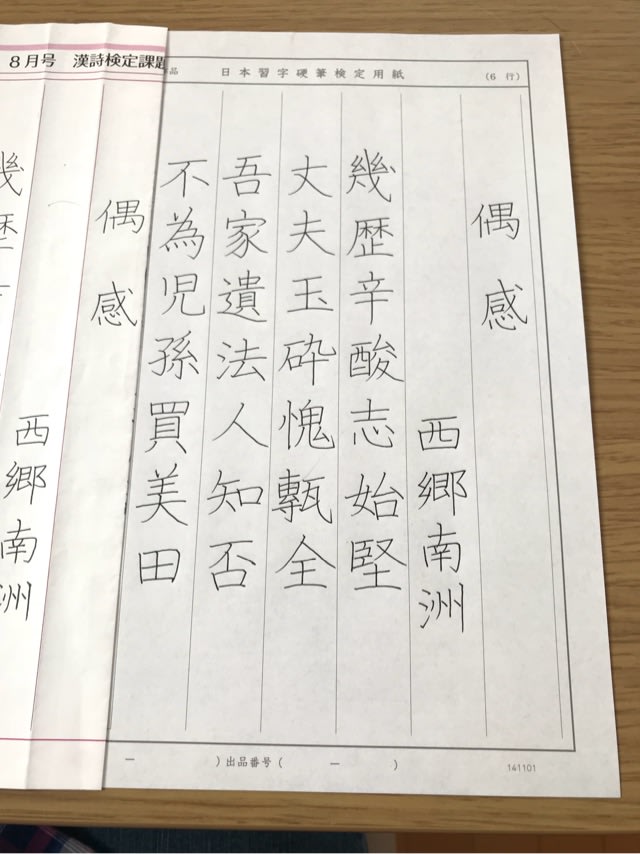 8月号 漢詩検定課題
品 日本習字硬筆検定用紙 (6行)
偶感
西郷南洲
幾歴辛酸志始堅
丈夫玉砕愧甎全
吾家遺法人知否
不為児孫買美田
偶感
西郷南洲
幾歴
ー )出品番号( ー )
141101